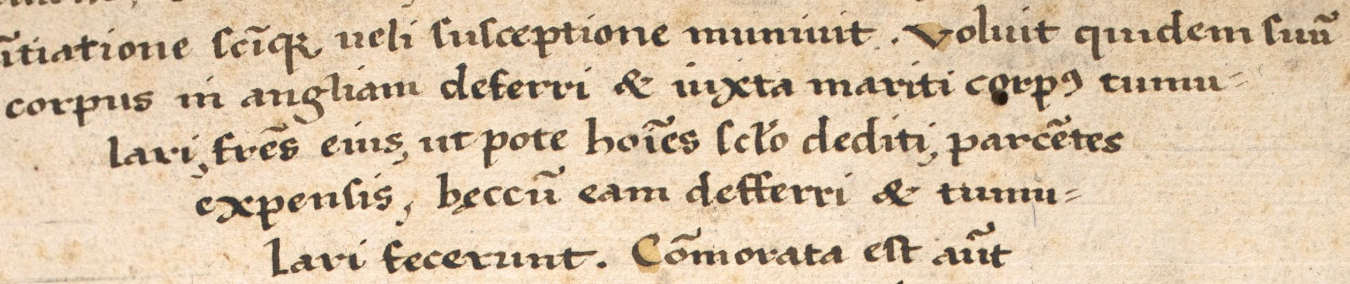 ītiatione scīq ueli susceptione muniuit. Voluit quidem suū
corpus in angliam deferri & iuxta mariti corpꝰ tumu=
lari, frēs eius, ut pote hoīes sclo dediti, parcētes
expensis, bęccū eam defferri & tumu=
lari fecerunt. Cōmorata est aūt